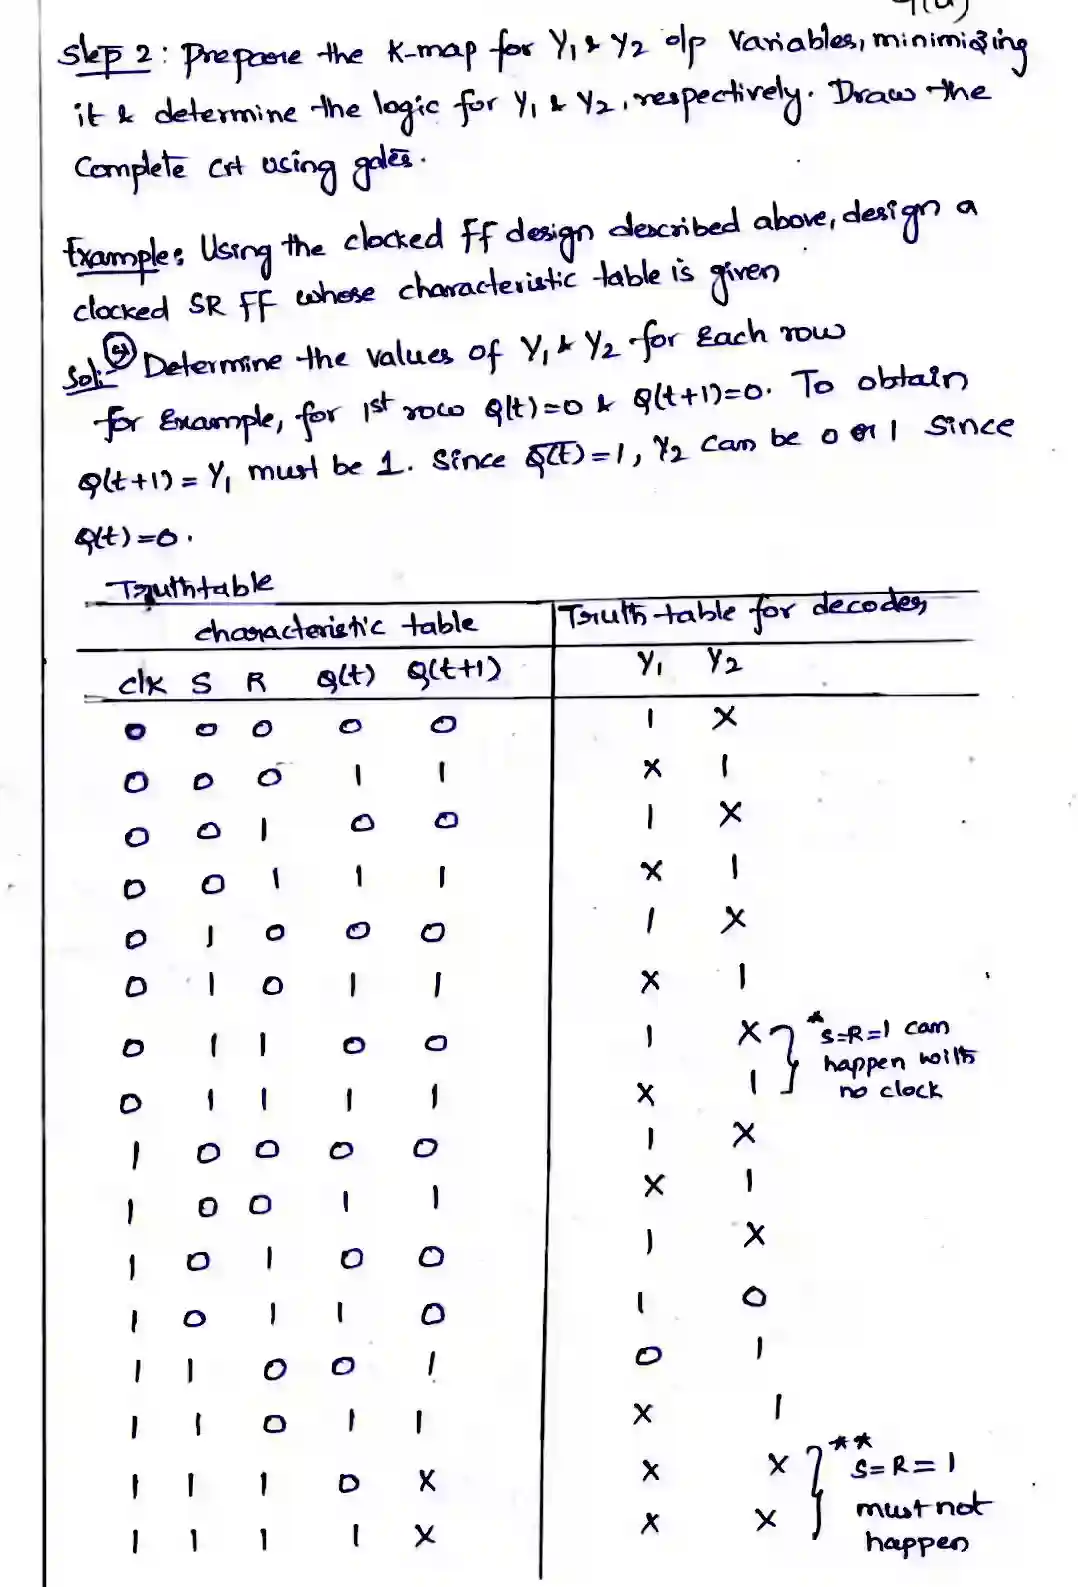 Step 2: Prepare the K-map for Y₁ & Y₂ o/p Variables, minimizing
it & determine the logic for Y₁ & Y₂, respectively. Draw the
Complete crt using gates.
Example: Using the clocked FF design described above, design a
clocked SR FF whose characteristic table is given
Sol: Determine the values of Y₁ & Y₂ for Each row
for Example, for 1st row Q(t)=0 & Q(t+1)=0. To obtain
Q(t+1) = Y₁ must be 1. Since Q̅(t)=1, Y₂ can be 0 or 1 Since
Q(t)=0.
Truthtable
characteristic table Truth-table for decoder
clk S R Q(t) Q(t+1) Y₁ Y₂
0 0 0 0 0 1 X
0 0 0 1 1 X 1
0 0 1 0 0 1 X
0 0 1 1 1 X 1
0 1 0 0 0 1 X
0 1 0 1 1 X 1
0 1 1 0 0 1 X * S=R=1 can
happen with
0 1 1 1 1 X 1 no clock
1 0 0 0 0 1 X
1 0 0 1 1 X 1
1 0 1 0 0 1 X
1 0 1 1 0 1 0
1 1 0 0 1 0 1
1 1 0 1 1 X 1
1 1 1 0 X X X ** S=R=1
must not
1 1 1 1 X X X happen